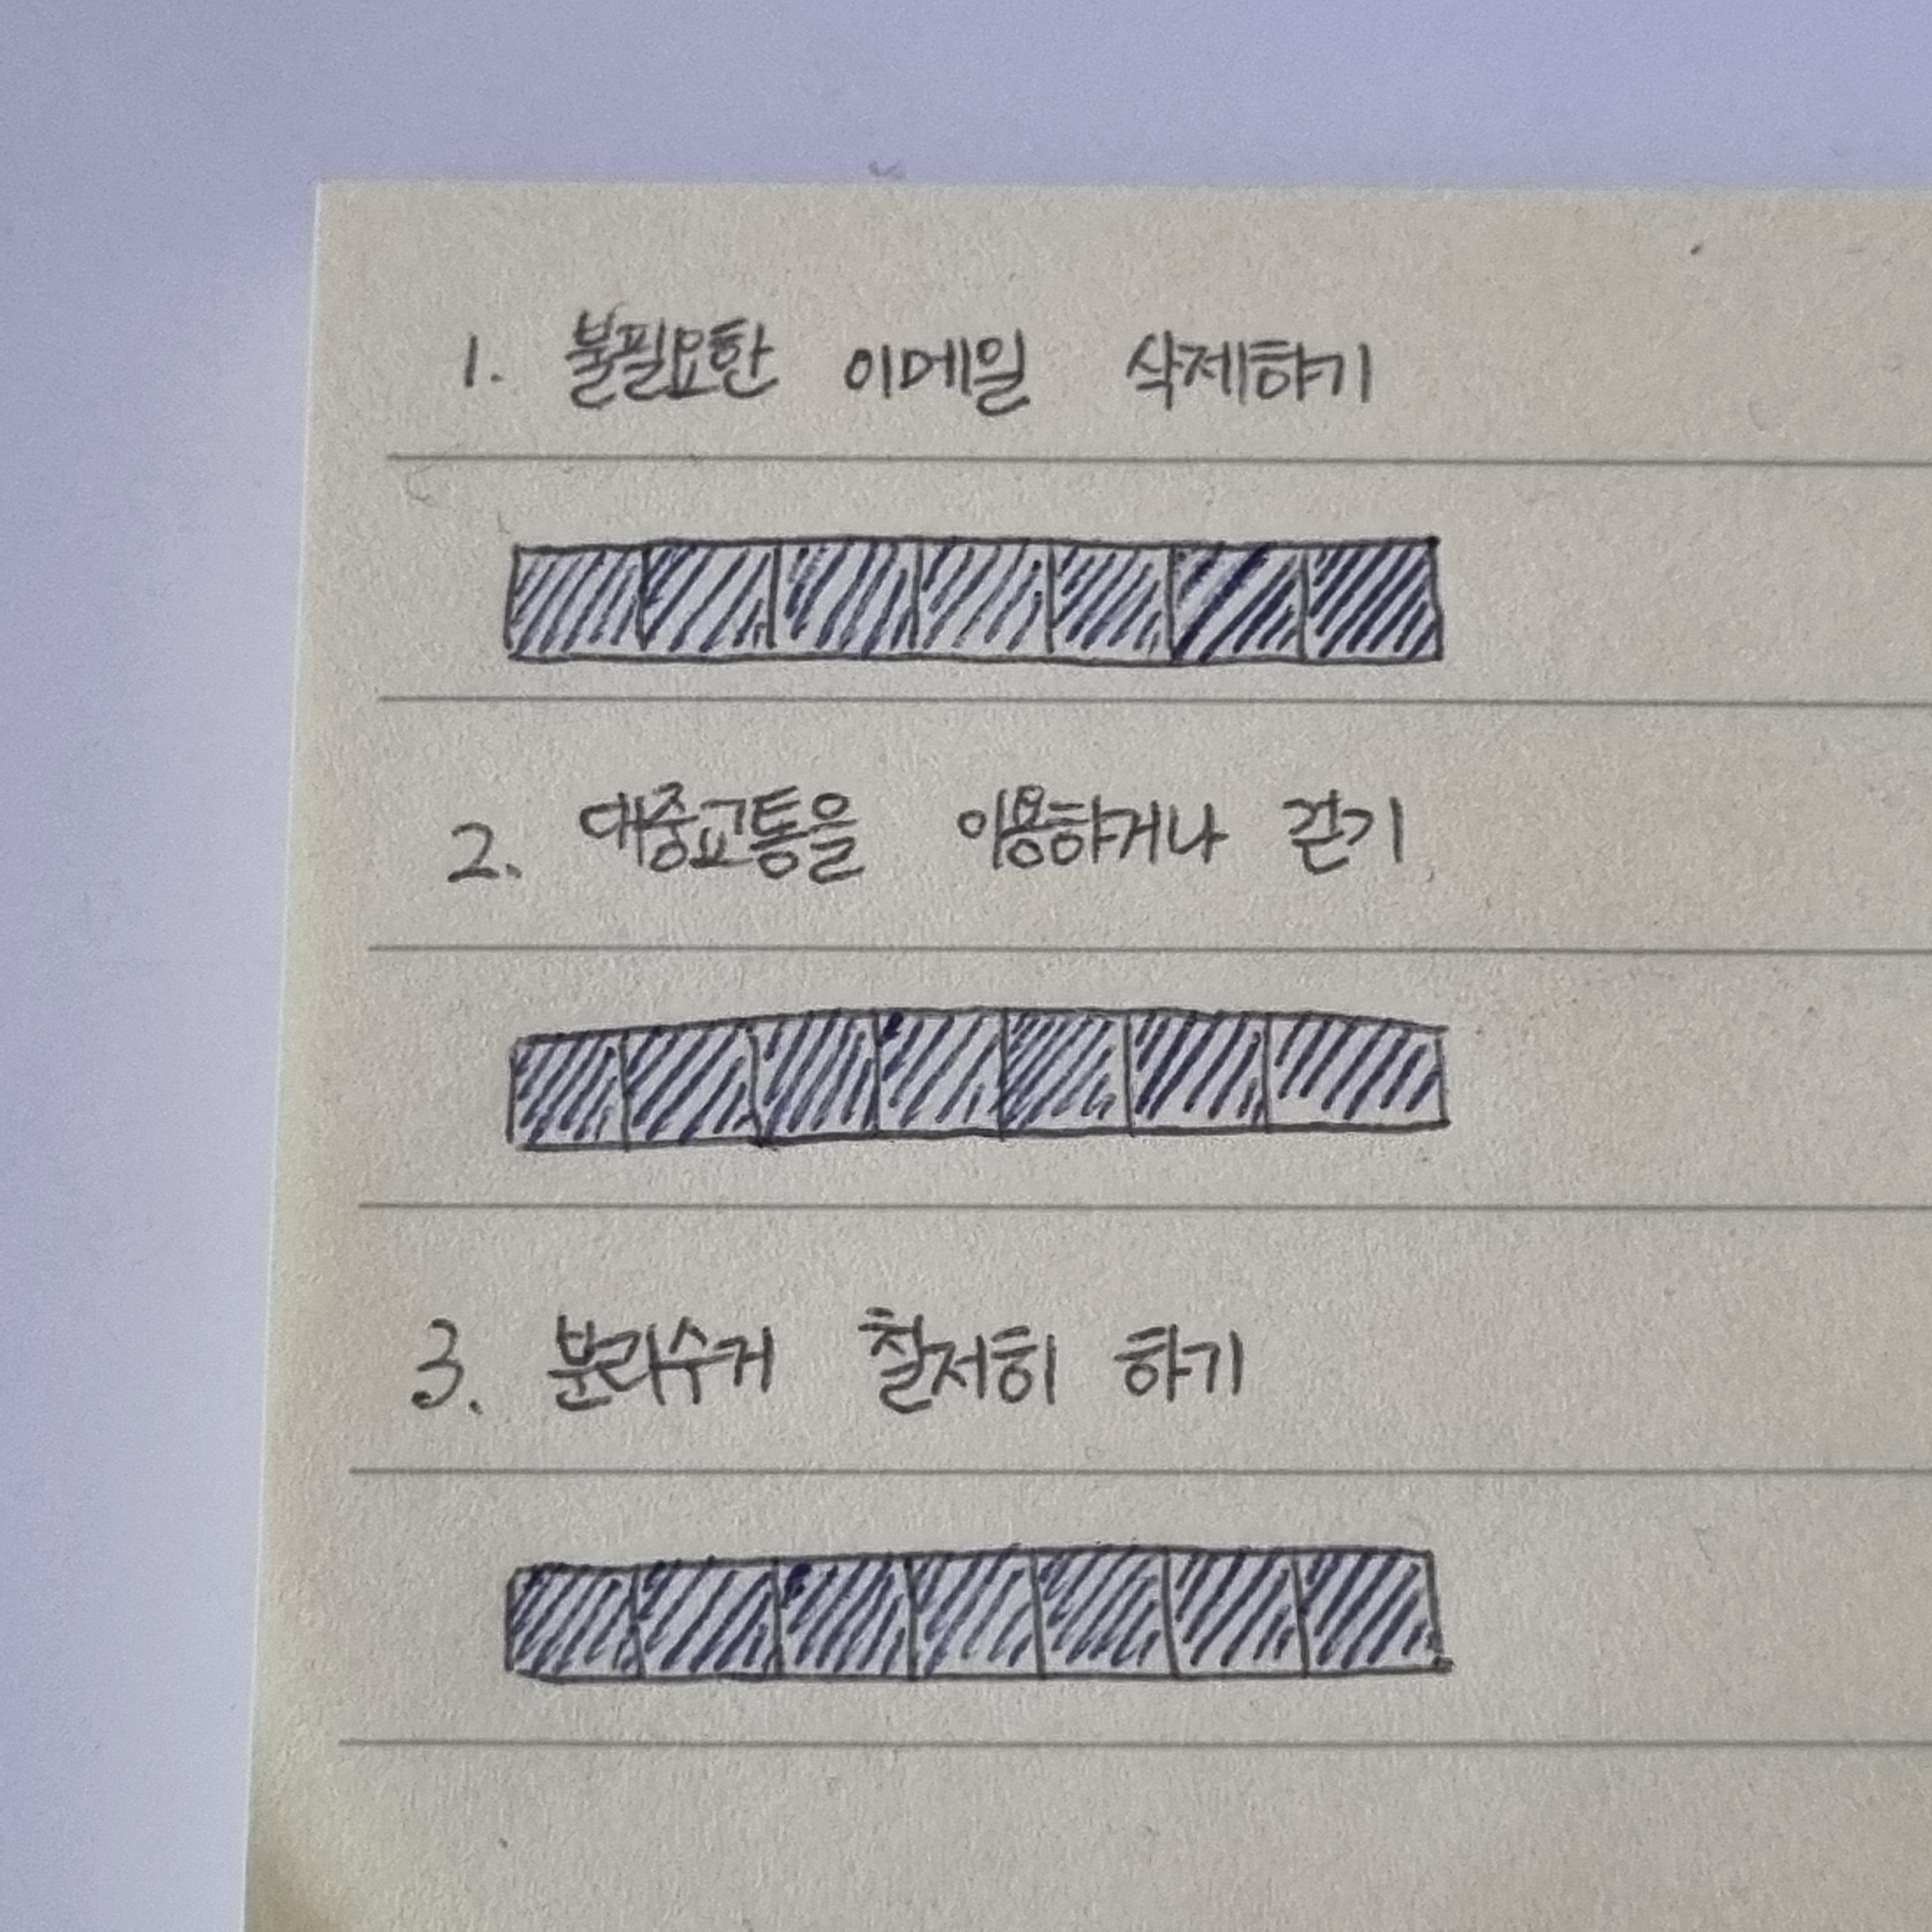 1. 불필요한 이메일 삭제하기
2. 대중교통을 이용하거나 걷기
3. 분리수거 철저히 하기